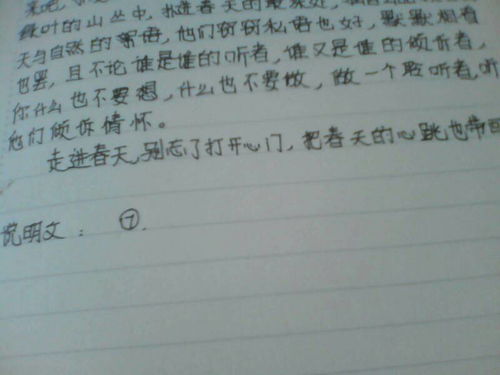 来吧,
绿叶的山丛中,扑进春天的最深处,
天与自然的絮语,他们窃窃私语也好,默默相看
也罢,且不论谁是谁的听者,谁又是谁的倾诉者,
你什么也不要想,什么也不要做,做一个聆听者,听
他们倾诉情怀。
走进春天,别忘了打开心门,把春天的心跳也带回
说明文: ⑦.